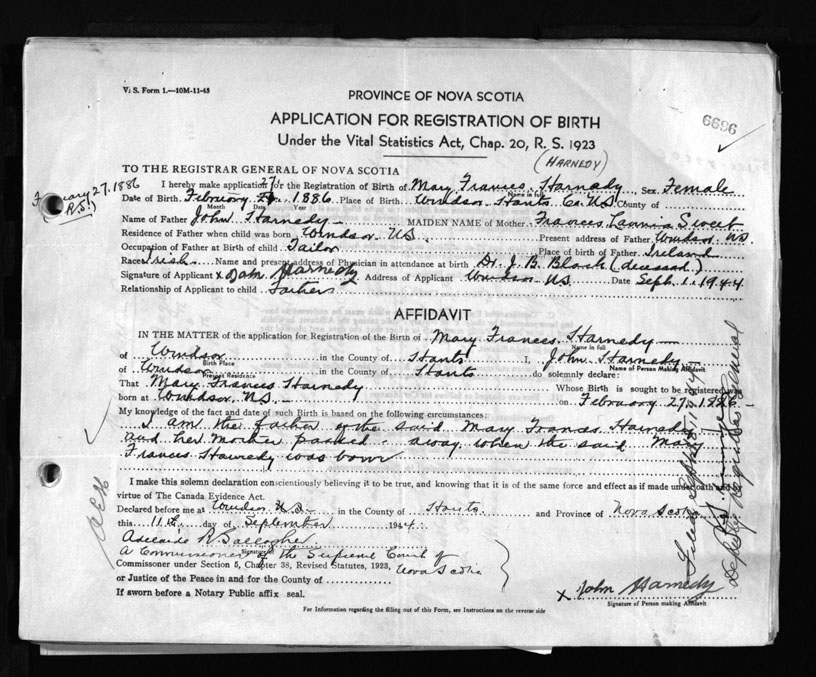 V. S. Form 1.—10M-11-43
PROVINCE OF NOVA SCOTIA
6696
APPLICATION FOR REGISTRATION OF BIRTH
Under the Vital Statistics Act, Chap. 20, R. S. 1923
(HARNEDY)
TO THE REGISTRAR GENERAL OF NOVA SCOTIA
February 27, 1886
I hereby make application for the Registration of Birth of Mary Frances Harnedy Sex Female
Name in full
Date of Birth February 27 1886 Place of Birth Windsor Hants Co. N.S. County of
Month Date Year
Name of Father John Harnedy MAIDEN NAME of Mother Frances Sweet
Residence of Father when child was born Windsor N.S. Present address of Father Windsor N.S.
Occupation of Father at Birth of child Tailor Place of birth of Father Ireland
Race Irish Name and present address of Physician in attendance at birth Dr. J. B. Black (deceased)
Signature of Applicant x Harnedy Address of Applicant Windsor N.S. Date Sept. 1. 1944
Relationship of Applicant to child Father
AFFIDAVIT
IN THE MATTER of the application for Registration of the Birth of Mary Frances Harnedy
Name in full
of Windsor in the County of Hants I, John Harnedy
Birth Place Name of Person Making Affidavit
of Windsor in the County of Hants do solemnly declare:
Present Residence
That Mary Frances Harnedy Whose Birth is sought to be registered was
born at Windsor N.S. on February 27. 1886
My knowledge of the fact and date of such Birth is based on the following circumstances:
I am the father of the said Mary Frances Harnedy
and her Mother passed away when the said Mary
Frances Harnedy was born
I make this solemn declaration conscientiously believing it to be true, and knowing that it is of the same force and effect as if made under oath and by
virtue of The Canada Evidence Act.
Declared before me at Windsor N.S. in the County of Hants and Province of Nova Scotia
this 11th day of September 1944.
Adelaide R Gallagher
Signature
A Commissioner of the Supreme Court of
Commissioner under Section 5, Chapter 38, Revised Statutes, 1923, Nova Scotia
or Justice of the Peace in and for the County of
If sworn before a Notary Public affix seal.
x John Harnedy
Signature of Person making Affidavit
For Information regarding the filling out of this Form, see Instructions on the reverse side
Deputy Registrar General